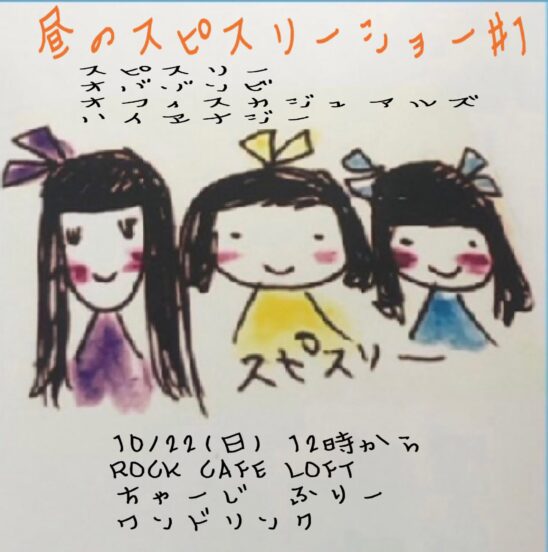 昼のスピスリーショー#1
スピスリー
オバゾンビ
オフィスカジュアルズ
ハイヱナジー
スピスリー
10/22(日) 12時から
ROCK CAFE LOFT
ちゃーじ ふりー
ワンドリンク